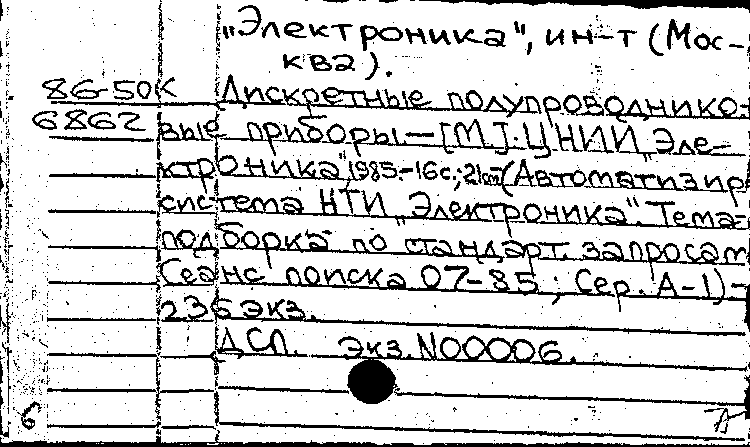 „Электроника", ин-т (Мос-
ква).
86-50К Дискретные полупроводнико-
6862 вые приборы.—[М.]: ЦНИИ „Эле-
ктроника", 1985.-16с.; 21см-(Автоматизир
система НТИ „Электроника". Тема-
подборка по стандарт. запросам
Сеанс поиска 07-85; Сер. А-1)-
236 экз.
ДСП. Экз. N00006.
6